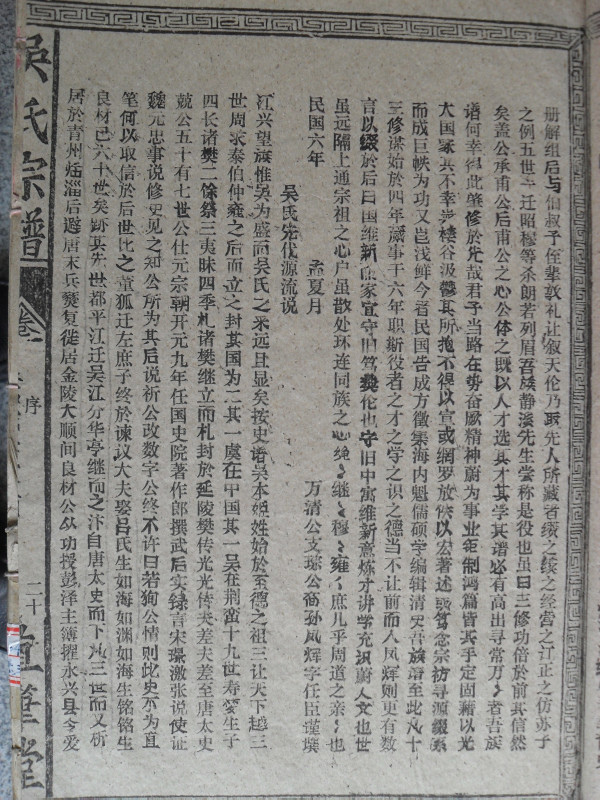 册解组后与伯叔子侄辈敦礼让叙天伦乃取先人所藏者缀之绥之经营之订正之仿苏子
之例五世一迁昭穆等杀朗若列眉吾族静溪先生尝称是役也虽曰三修功倍於前其信然
矣盖公承甫公后甫公之心公体之既以人才选其才其学其谱必有高出寻常万万者吾族
谱何幸得此肇修於先哉君子当路在势奋厥精神蔚为事业钜制鸿篇皆其手定固藉以光
大国家其不幸涉楼谷汲鬱其所抱不得以宣或网罗放佚以宏著述或笃念宗祊寻源缀系
而成巨帙为功又岂浅鲜今者民国告成方徵集海内魁儒硕学编辑清史吾族谱至此凡十
三修谋始於四年蒇事于六年职斯役者之才之学之识之德当不让前而人凤辉则更有数
言以缀於后曰国维新而家宜守旧笃彝伦也守旧中寓维新意炼才讲学充识蔚人文也世
虽远隔上通宗祖之心户虽散处环连同族之心绳绳继继穆穆雍雍庶几乎周道之亲亲也
民国六年 孟夏月 万清公支琮公裔孙凤辉字任臣谨撰
吴氏先代源流说
江兴望族惟吴为盛而吴氏之来远且显矣按史谱吴本姬姓始於至德之祖三让天下越三
世周求泰伯仲雍之后而立之封其国为二其一虞在中国其一吴在荆蛮十九世寿梦生子
四长诸樊二馀祭三夷昧四季札诸樊继立而札封於延陵樊传光光传夫差夫差至唐太史
兢公五十有七世公仕元宗朝开元九年任国史院著作郎撰武后实录言宋璟激张说使证
魏元忠事说修史见之知公所为其后说祈公改数字公终不许曰若狥公情则此史不为直
笔何以取信於后世比之董狐迁左庶子终於谏议大夫娶吕氏生如海如渊如海生铭铭生
良材已六十世矣跡其先世都平江迁吴江分华亭继而之汴自唐太史而下凡三世而又析
居於青州临淄后避唐末兵燹复徙居金陵大顺间良材公以功授彭泽主簿擢永兴县令爱
吴氏宗谱
卷一
序
二十